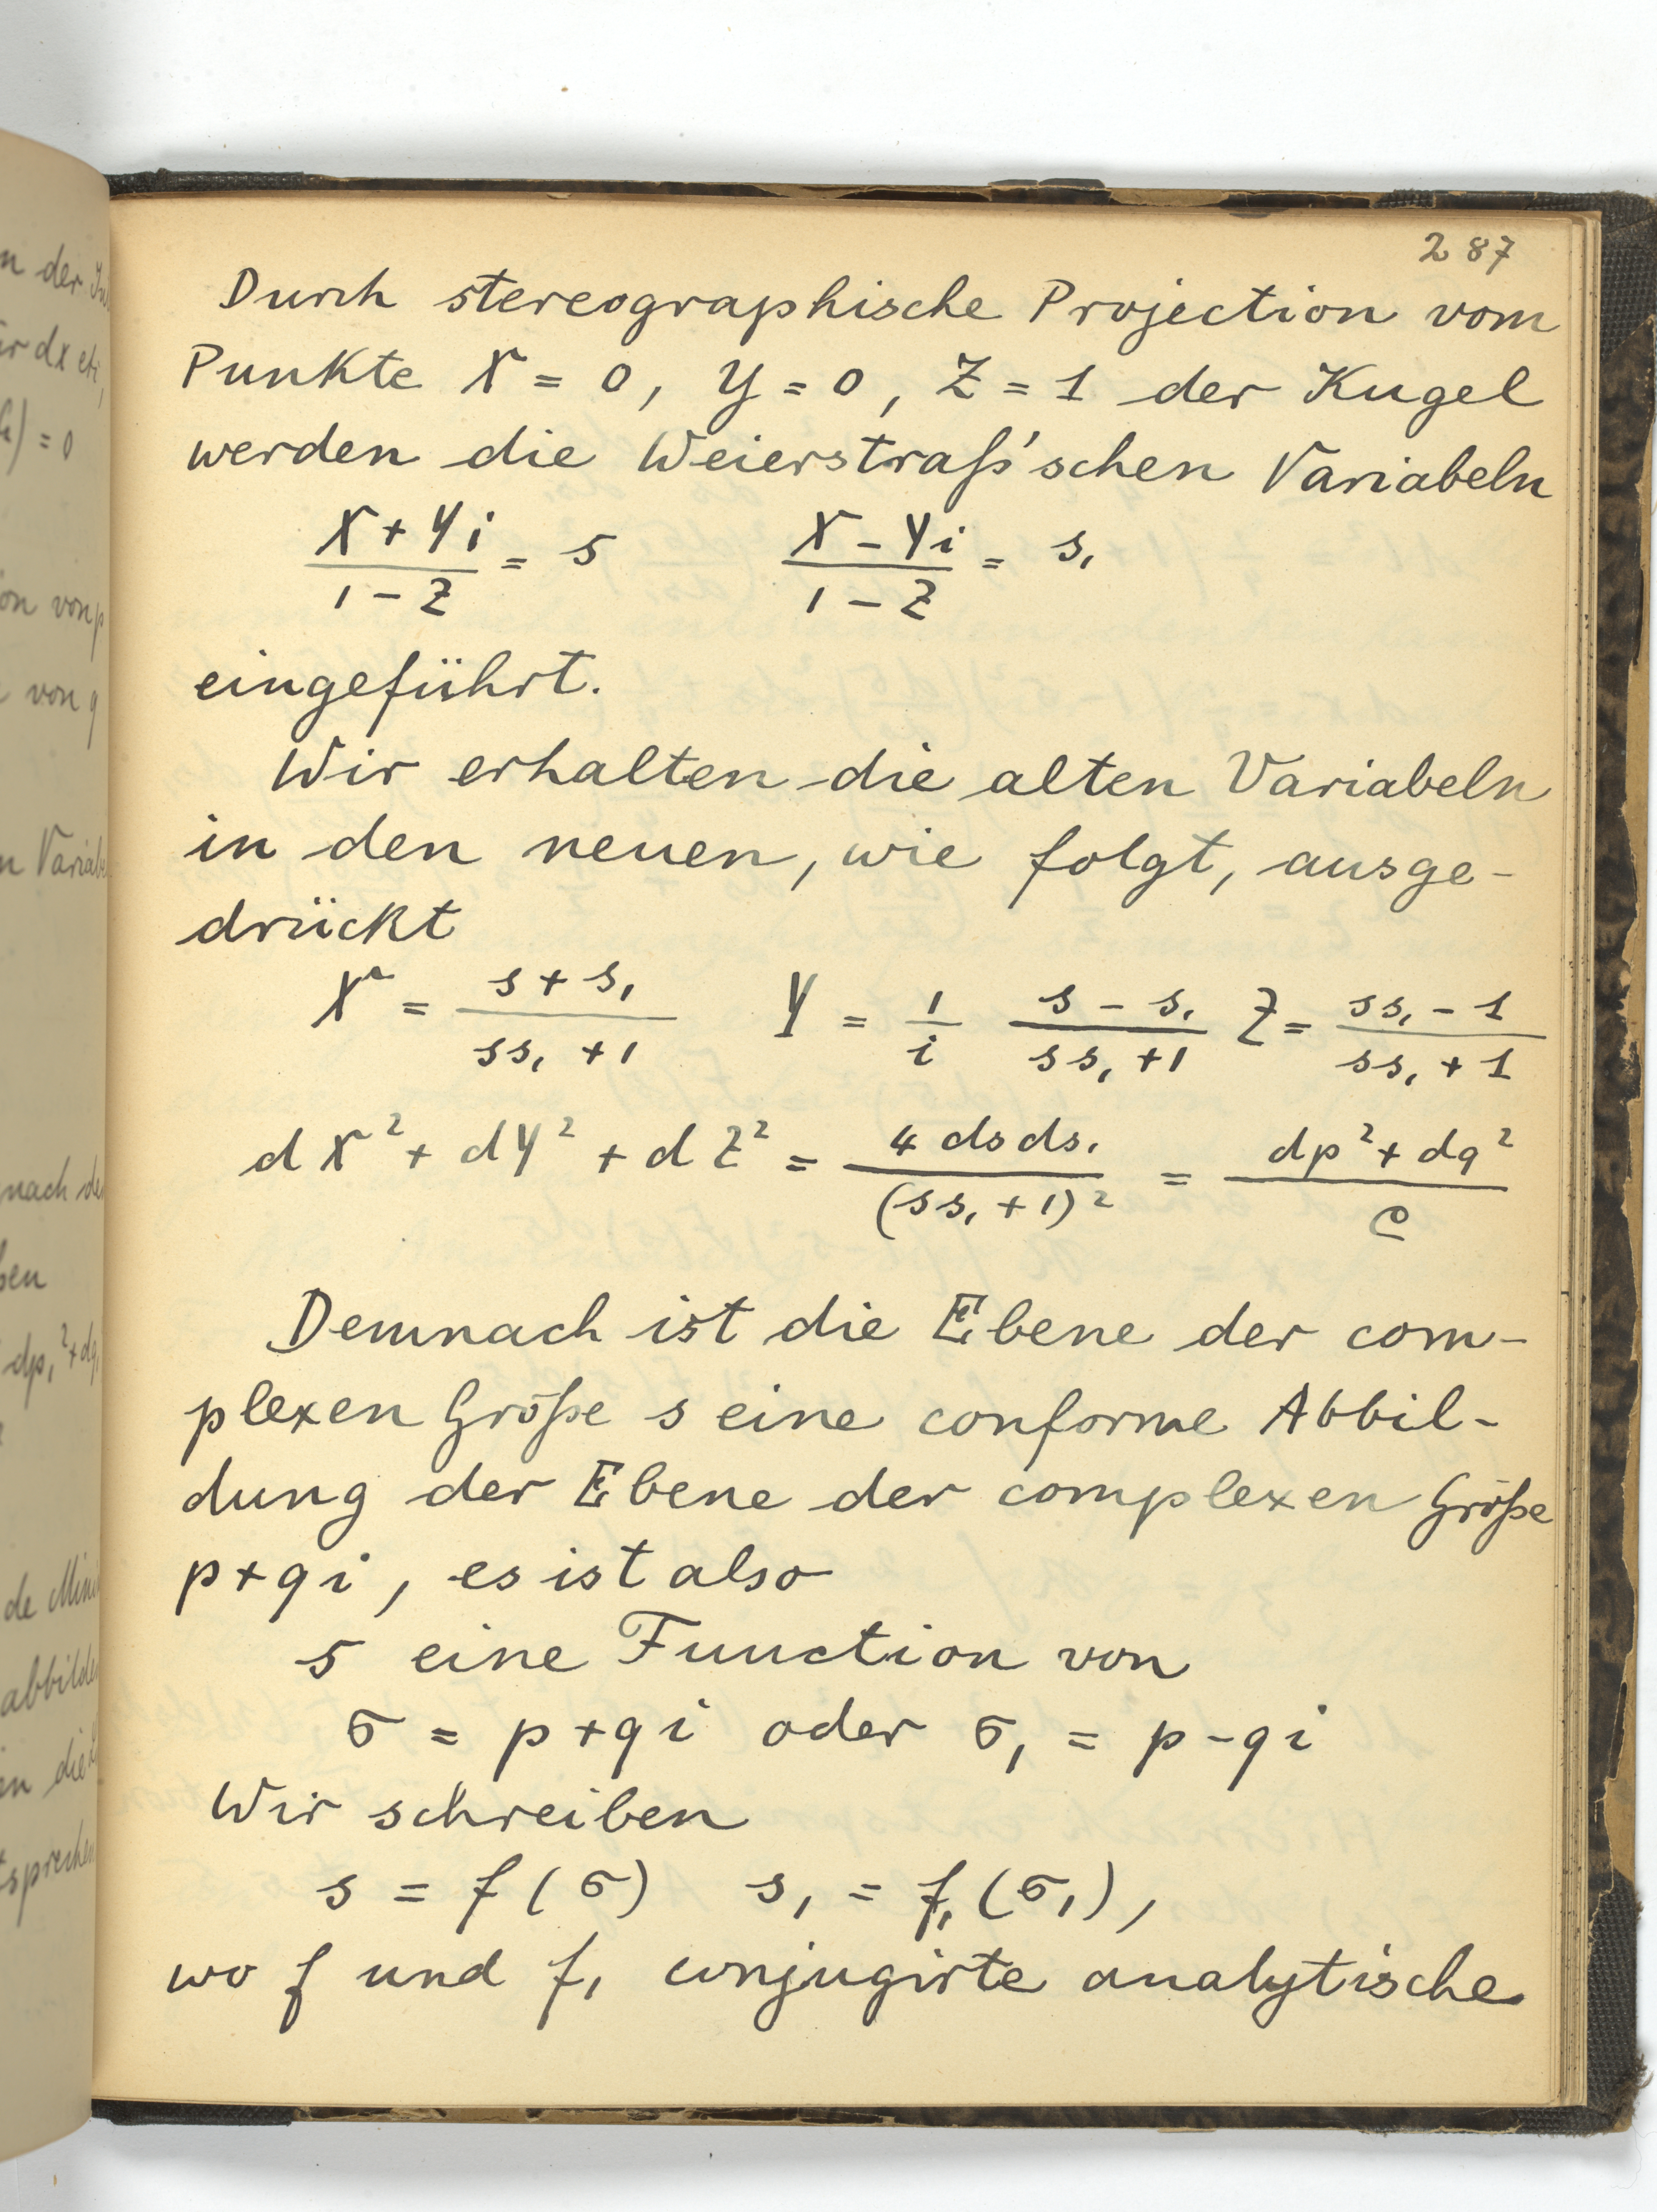 287
Durch stereographische Projection vom
Punkte X = 0, Y = 0, Z = 1 der Kugel
werden die Weierstraß'schen Variabeln
(X + Yi)/(1 - Z) = s (X - Yi)/(1 - Z) = s₁
eingeführt.
Wir erhalten die alten Variabeln
in den neuen, wie folgt, ausge-
drückt
X = (s + s₁)/(ss₁ + 1) Y = 1/i (s - s₁)/(ss₁ + 1) Z = (ss₁ - 1)/(ss₁ + 1)
dX² + dY² + dZ² = 4 ds ds₁/(ss₁ + 1)² = (dp² + dq²)/e
Demnach ist die Ebene der com-
plexen Größe s eine conforme Abbil-
dung der Ebene der complexen Größe
p + qi, es ist also
s eine Function von
σ = p + qi oder σ₁ = p - qi
Wir schreiben
s = f(σ) s₁ = f₁(σ₁),
wo f und f₁ conjugirte analytische